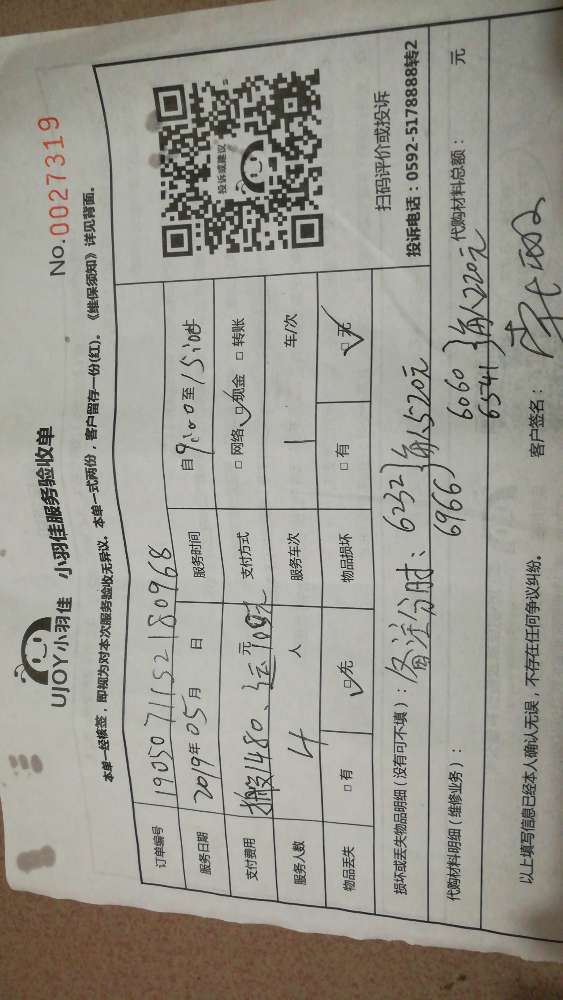 UJOY小羽佳 小羽佳服务验收单
No.0027319
本单一经核签，即视为对本次服务验收无异议。本单一式两份，客户留存一份(红)。《维保须知》详见背面。
订单编号 1905071152180968
服务日期 2019年05月 日 服务时间 自9:00至15:00
支付费用 搬1480、运 元 支付方式 □网络 □现金 □转账
服务人数 4 人 服务车次 1 车/次
物品丢失 □有 □无 物品损坏 □有 □无
投诉或建议
扫码评价或投诉
投诉电话：0592-5178888转2
损坏或丢失物品明细（没有可不填）：备注分时：6232 每人520元
6966
代购材料明细（维修业务）： 6060 每人220元 代购材料总额： 元
6541
以上填写信息已经本人确认无误，不存在任何争议纠纷。 客户签名：